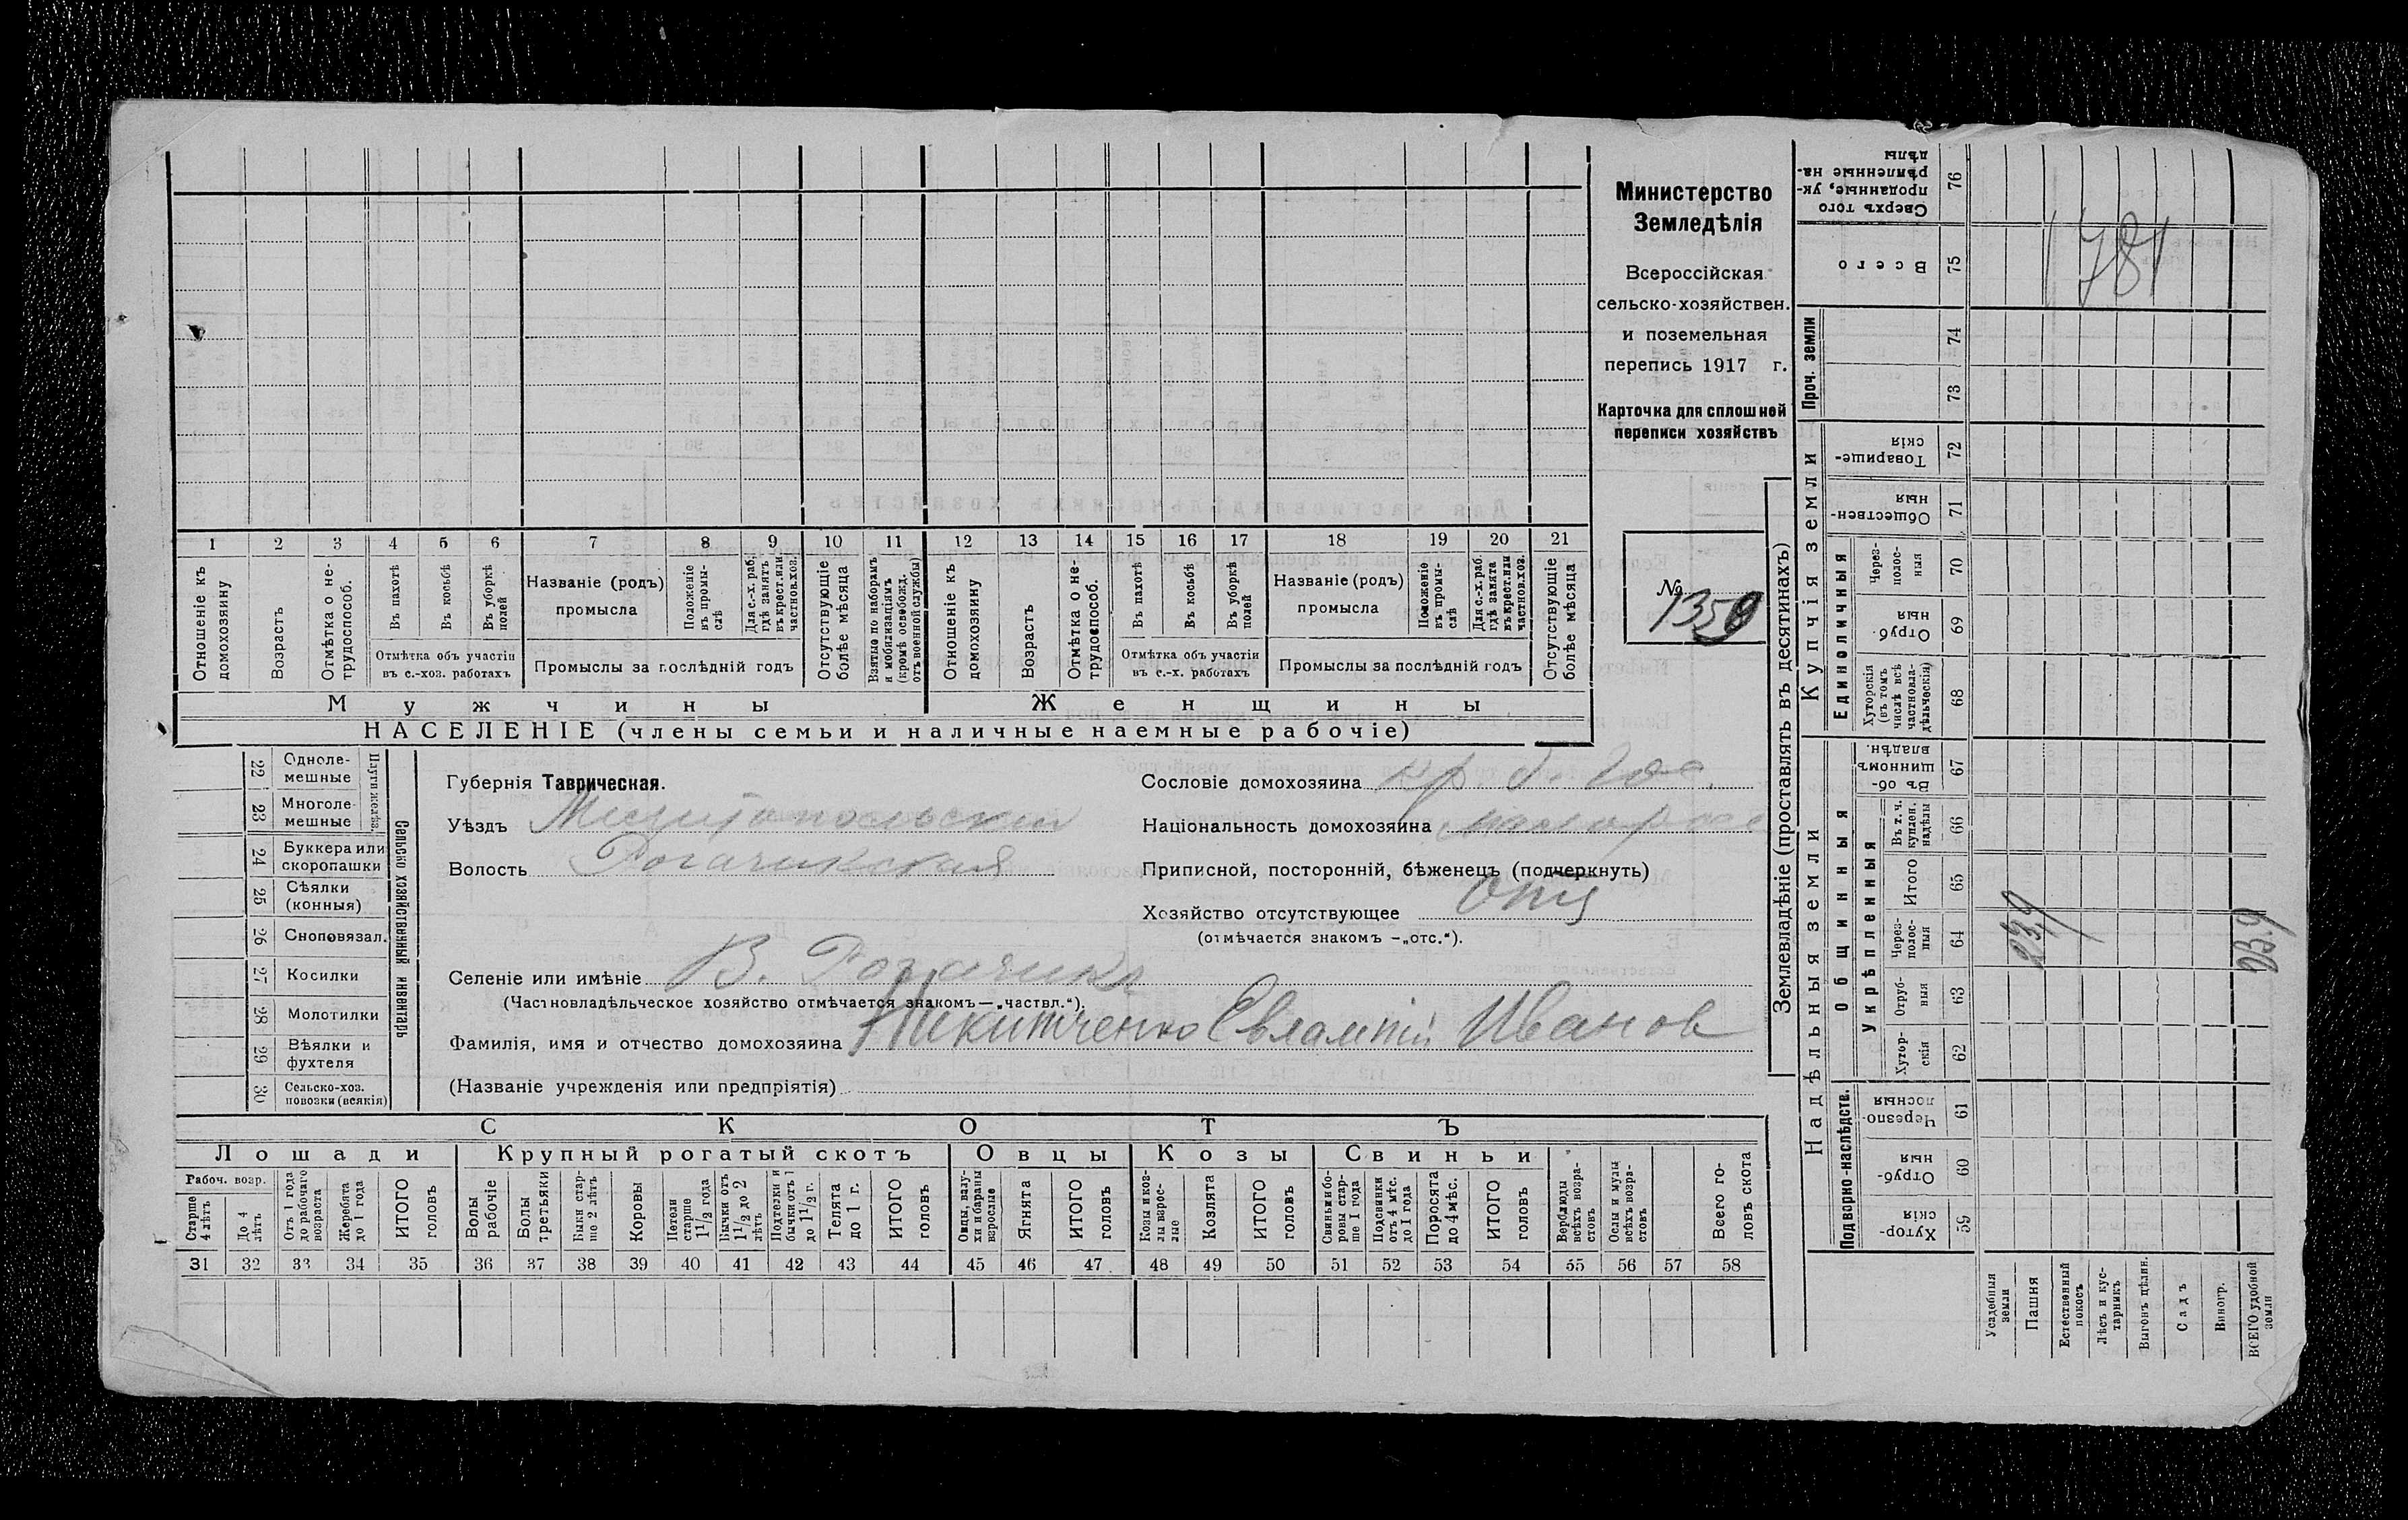 Министерство
Земледѣлія
Всероссійская
сельско-хозяйствен.
и поземельная
перепись 1917 г.
Карточка для сплошной
переписи хозяйствъ
№
1 2 3 4 5 6 7 8 9 10 11 12 13 14 15 16 17 18 19 20 21
Отношеніе къ домохозяину
Возрастъ
Отмѣтка о не-трудоспособ.
Въ пахотѣ
Въ косьбѣ
Въ уборкѣ полей
Отмѣтка объ участіи
въ с.-хоз. работахъ
Названіе (родъ)
промысла
Положеніе въ промы-слѣ
Для с.-х. раб. гдѣ занятъ въ крест. или частнов. хоз.
Промыслы за послѣдній годъ
Отсутствующіе болѣе мѣсяца
Взятые по наборамъ и мобилизаціямъ (кромѣ освобожд. отъ военной службы)
Отношеніе къ домохозяину
Возрастъ
Отмѣтка о не-трудоспособ.
Въ пахотѣ
Въ косьбѣ
Въ уборкѣ полей
Отмѣтка объ участіи
въ с.-х. работахъ
Названіе (родъ)
промысла
Положеніе въ промы-слѣ
Для с.-х. раб. гдѣ занята въ крест. или частнов. хоз.
Промыслы за послѣдній годъ
Отсутствующіе болѣе мѣсяца
Мужчины Женщины
НАСЕЛЕНІЕ (члены семьи и наличные наемные рабочіе)
22 Одноле-мешные
23 Многоле-мешные
Плуги желѣз.
24 Буккера или скоропашки
25 Сѣялки (конныя)
26 Сноповязал.
27 Косилки
28 Молотилки
29 Вѣялки и фухтеля
30 Сельско-хоз. повозки (всякія)
Сельско хозяйственный инвентарь
Губернія Таврическая.
Уѣздъ Мелитопольскій
Волость Рогачикская
Селеніе или имѣніе В. Рогачикъ
(Частновладѣльческое хозяйство отмѣчается знакомъ — „частвл.“).
Фамилія, имя и отчество домохозяина Никитченко Евлампій Иванов
(Названіе учрежденія или предпріятія)
Сословіе домохозяина кр. б.
Національность домохозяина малоросс
Приписной, посторонній, бѣженецъ (подчеркнуть)
Хозяйство отсутствующее
(отмѣчается знакомъ —„отс.“).
СКОТЪ
Лошади Крупный рогатый скотъ Овцы Козы Свиньи
Рабоч. возр.
Старше 4 лѣтъ
До 4 лѣтъ
Отъ 1 года до рабочаго возраста
Жеребята до 1 года
ИТОГО головъ
Волы рабочіе
Волы третьяки
Быки стар-ше 2 лѣтъ
Коровы
Нетели старше 1 1/2 года
Бычки отъ 1 1/2 до 2 лѣтъ
Подтелки и бычки отъ 1 до 1 1/2 г.
Телята до 1 г.
ИТОГО головъ
Овцы, валу-хи и бараны взрослые
Ягнята
ИТОГО головъ
Козы и коз-лы взрос-лые
Козлята
ИТОГО головъ
Свиньи и бо-ровы стар-ше 1 года
Подсвинки отъ 4 мѣс. до 1 года
Поросята до 4 мѣс.
ИТОГО головъ
Верблюды всѣхъ возра-стовъ
Ослы и мулы всѣхъ возра-стовъ
Всего го-ловъ скота
31 32 33 34 35 36 37 38 39 40 41 42 43 44 45 46 47 48 49 50 51 52 53 54 55 56 57 58
Землевладѣніе (проставлять въ десятинахъ)
Надѣльныя земли Купчія земли Проч. земли
Подворно-наслѣдств.
Общинныя
Укрѣпленныя
Единоличныя
Сверхъ того проданные, ук-рѣпленные на-дѣлы 76
Всего 75
74
73
Товарище-скія 72
Обществен-ныя 71
Через-полос-ныя 70
Отруб-ныя 69
Хуторскія (въ томъ числѣ всѣ частновла-дѣльческія) 68
Въ об-щинномъ владѣн. 67
Въ т. ч. куплен. надѣлы 66
Итого 65
Через-полос-ныя 64
Отруб-ныя 63
Хутор-скія 62
Черезпо-лосныя 61
Отруб-ныя 60
Хутор-скія 59
1781
23,9
23,9
Усадебныя земли
Пашня
Естественный покосъ
Лѣсъ и кус-тарникъ
Выгонъ цѣлин.
Садъ
Виногр.
ВСЕГО удобной земли